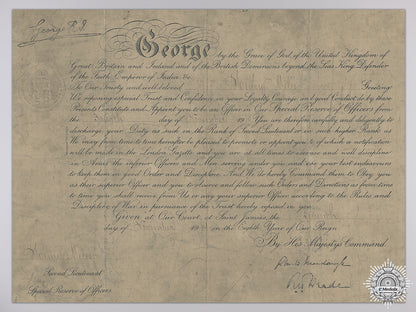 George R.I.
George by the Grace of God of the United Kingdom of
Great Britain and Ireland and of the British Dominions beyond the Seas King Defender
of the Faith, Emperor of India, &c.
To Our Trusty and well beloved Greeting
We reposing especial Trust and Confidence in your Loyalty Courage and good Conduct do by these
Presents Constitute and Appoint you to be an Officer in Our Special Reserve of Officers from
the day of 19 You are therefore carefully and diligently to
discharge your Duty as such in the Rank of Second Lieutenant or in such higher Rank as
We may from time to time hereafter be pleased to promote or appoint you to of which a notification
will be made in the London Gazette and you are at all times to exercise and well discipline
in Arms the inferior Officers and Men serving under you and use your best endeavours
to keep them in good Order and Discipline. And We do hereby Command them to Obey you
as their superior Officer and you to observe and follow such Orders and Directions as from time
to time you shall receive from Us or any your superior Officer according to the Rules and
Discipline of War in pursuance of the Trust hereby reposed in you.
Given at Our Court, at Saint James's, the
day of November 19 in the Eighth Year of Our Reign
By His Majesty's Command.
Second Lieutenant
Special Reserve of Officers
eMedals